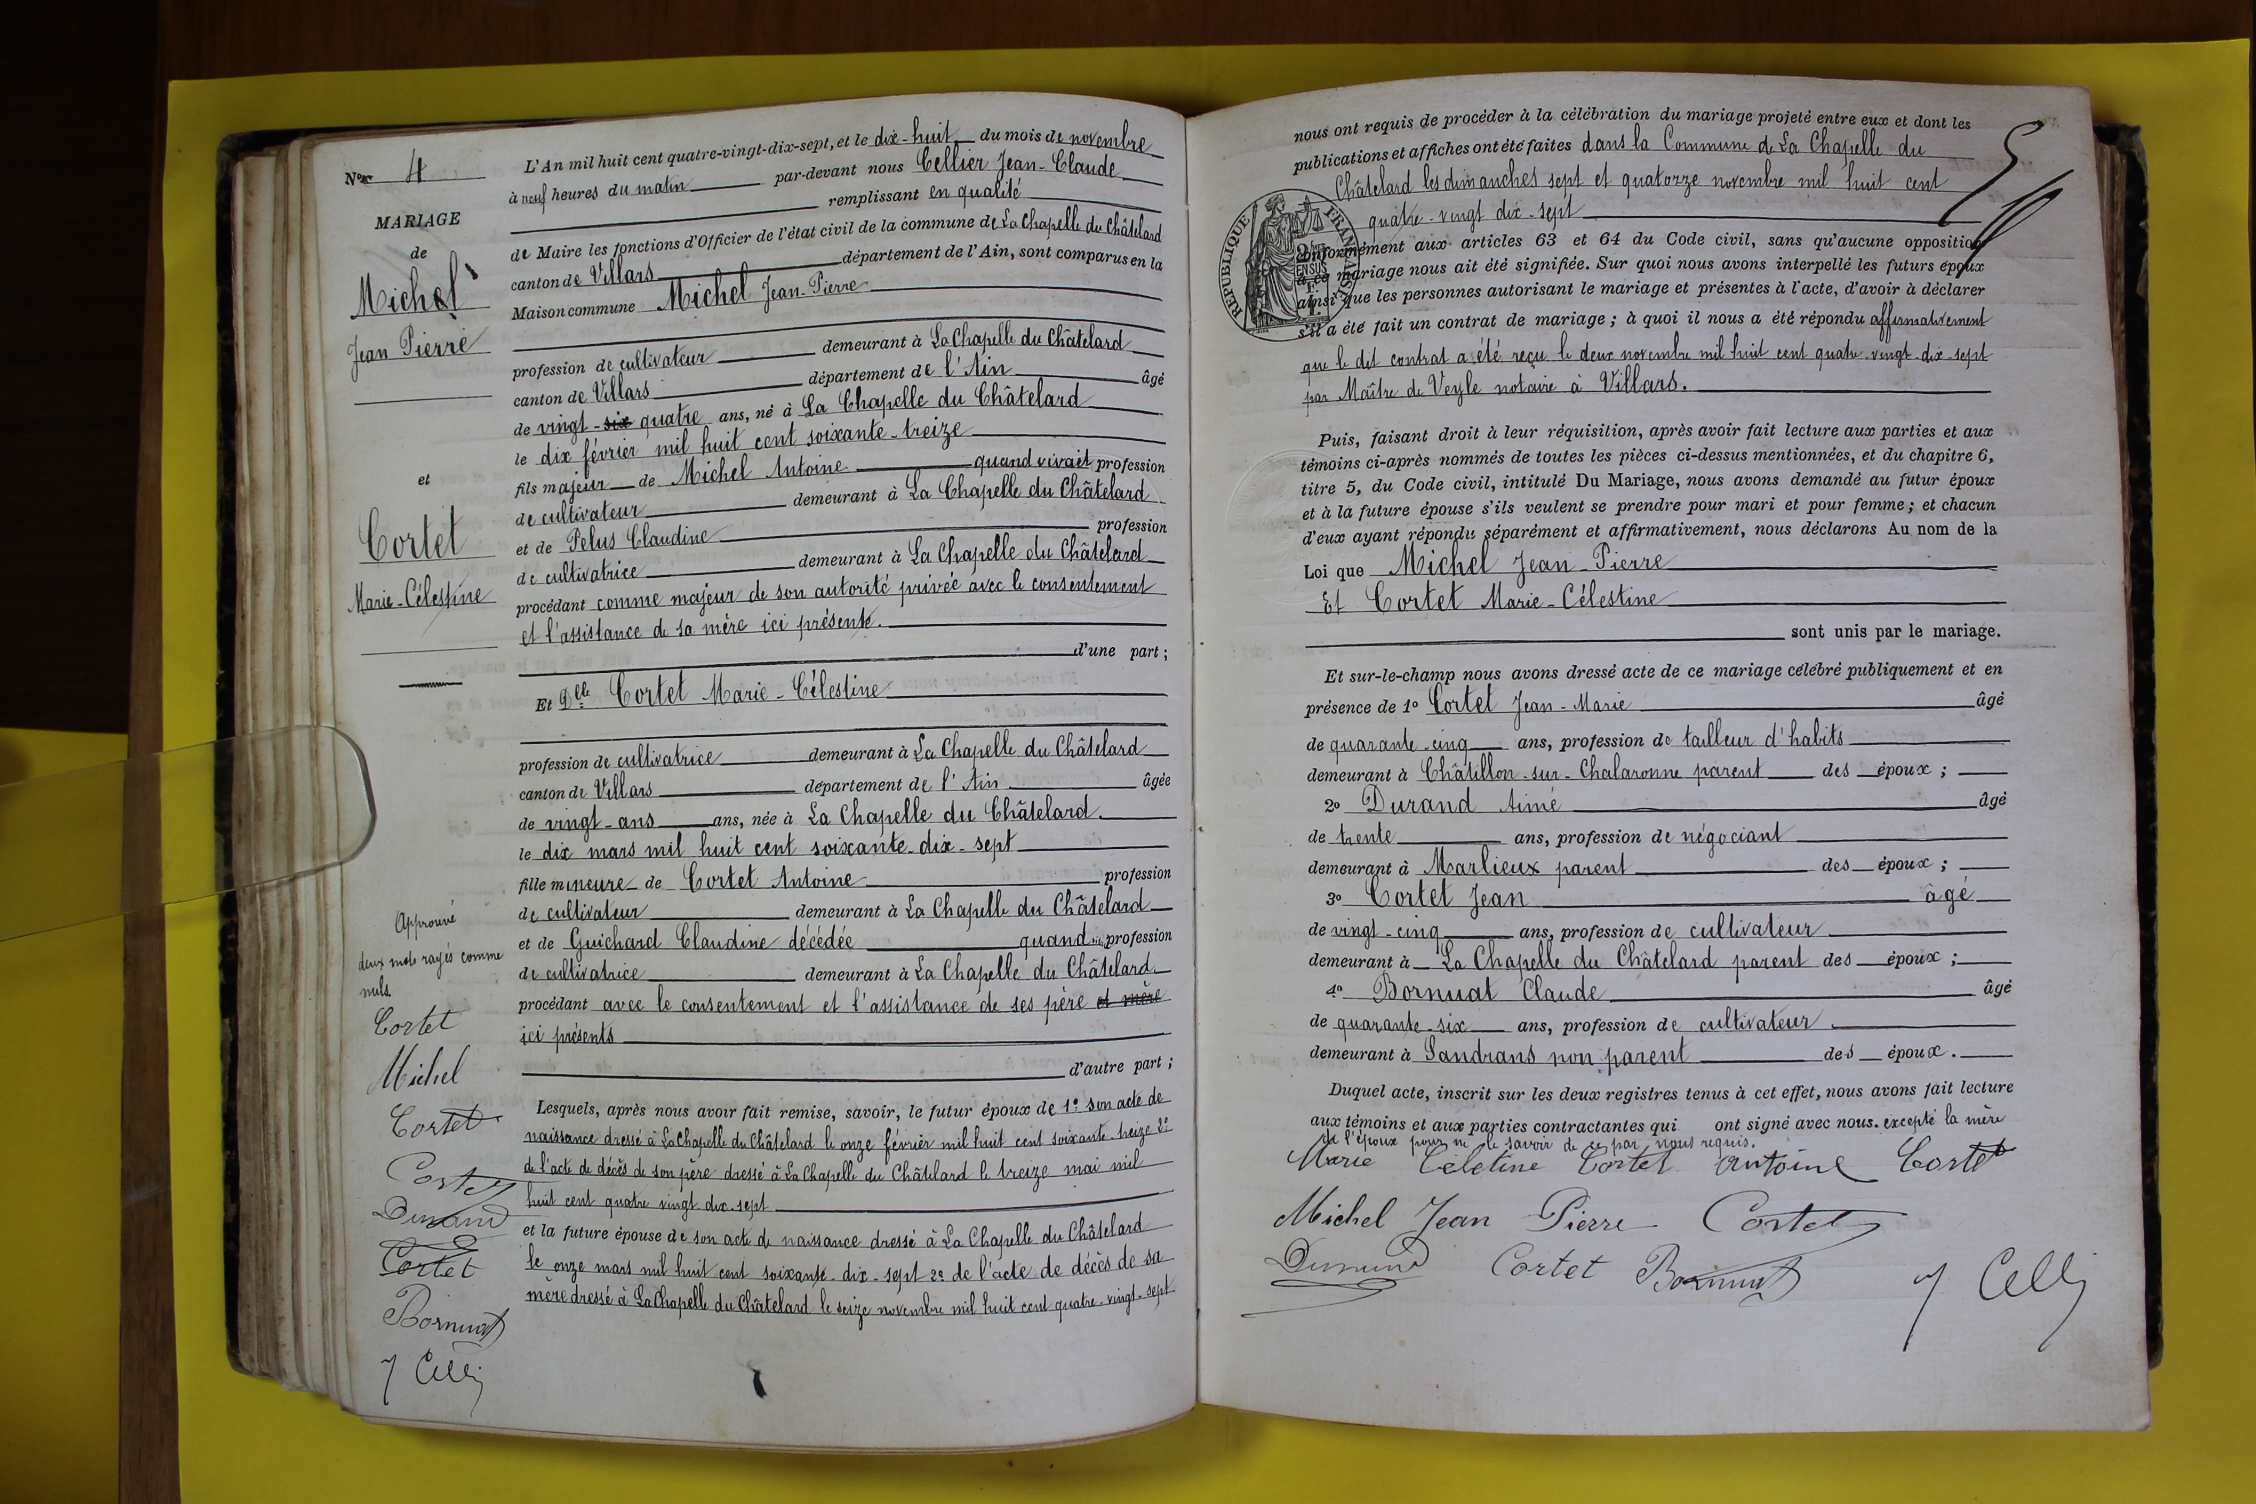 N° 4
MARIAGE
de
Michel
Jean Pierre
et
Cortet
Marie-Célestine
Approuvé
deux mots rayés comme
nuls
Cortet
Michel
Cortet
Cortet
Durand
Cortet
Bornuat
J Celli
L'An mil huit cent quatre-vingt-dix-sept, et le dix-huit du mois de novembre
à neuf heures du matin par-devant nous Cellier Jean-Claude
remplissant en qualité
de Maire les fonctions d'Officier de l'état civil de la commune de La Chapelle du Châtelard
canton de Villars département de l'Ain, sont comparus en la
Maison commune Michel Jean-Pierre
profession de cultivateur demeurant à La Chapelle du Châtelard
canton de Villars département de l'Ain âgé
de vingt-six quatre ans, né à La Chapelle du Châtelard
le dix février mil huit cent soixante-treize
fils majeur de Michel Antoine quand vivait profession
de cultivateur demeurant à La Chapelle du Châtelard
et de Pelus Claudine profession
de cultivatrice demeurant à La Chapelle du Châtelard
procédant comme majeur de son autorité privée avec le consentement
et l'assistance de sa mère ici présente.
d'une part;
Et Delle Cortet Marie-Célestine
profession de cultivatrice demeurant à La Chapelle du Châtelard
canton de Villars département de l'Ain âgée
de vingt-ans ans, née à La Chapelle du Châtelard.
le dix mars mil huit cent soixante-dix-sept
fille mineure de Cortet Antoine profession
de cultivateur demeurant à La Chapelle du Châtelard
et de Guichard Claudine décédée quand profession
de cultivatrice demeurant à La Chapelle du Châtelard.
procédant avec le consentement et l'assistance de ses père et mère
ici présents
d'autre part;
Lesquels, après nous avoir fait remise, savoir, le futur époux de 1° son acte de
naissance dressé à La Chapelle du Châtelard le onze février mil huit cent soixante-treize 2°
de l'acte de décès de son père dressé à La Chapelle du Châtelard le treize mai mil
huit cent quatre vingt dix-sept
et la future épouse de son acte de naissance dressé à La Chapelle du Châtelard
le onze mars mil huit cent soixante-dix-sept 2° de l'acte de décès de sa
mère dressé à La Chapelle du Châtelard le seize novembre mil huit cent quatre-vingt-sept
nous ont requis de procéder à la célébration du mariage projeté entre eux et dont les
publications et affiches ont été faites dans la Commune de La Chapelle du
Châtelard les dimanches sept et quatorze novembre mil huit cent
quatre-vingt dix-sept
RÉPUBLIQUE FRANÇAISE
conformément aux articles 63 et 64 du Code civil, sans qu'aucune opposition
à ce mariage nous ait été signifiée. Sur quoi nous avons interpellé les futurs époux
ainsi que les personnes autorisant le mariage et présentes à l'acte, d'avoir à déclarer
s'il a été fait un contrat de mariage; à quoi il nous a été répondu affirmativement
que le dit contrat a été reçu le deux novembre mil huit cent quatre-vingt-dix-sept
par Maître de Veyle notaire à Villars.
Puis, faisant droit à leur réquisition, après avoir fait lecture aux parties et aux
témoins ci-après nommés de toutes les pièces ci-dessus mentionnées, et du chapitre 6,
titre 5, du Code civil, intitulé Du Mariage, nous avons demandé au futur époux
et à la future épouse s'ils veulent se prendre pour mari et pour femme; et chacun
d'eux ayant répondu séparément et affirmativement, nous déclarons Au nom de la
Loi que Michel Jean-Pierre
Et Cortet Marie-Célestine
sont unis par le mariage.
Et sur-le-champ nous avons dressé acte de ce mariage célébré publiquement et en
présence de 1° Cortet Jean-Marie âgé
de quarante-cinq ans, profession de tailleur d'habits
demeurant à Châtillon-sur-Chalaronne parent des époux;
2° Durand Aimé âgé
de trente ans, profession de négociant
demeurant à Marlieux parent des époux;
3° Cortet Jean âgé
de vingt-cinq ans, profession de cultivateur
demeurant à La Chapelle du Châtelard parent des époux;
4° Bornuat Claude âgé
de quarante-six ans, profession de cultivateur.
demeurant à Sandrans non parent des époux.
Duquel acte, inscrit sur les deux registres tenus à cet effet, nous avons fait lecture
aux témoins et aux parties contractantes qui ont signé avec nous. excepté la mère
de l'époux pour ne le savoir de ce par nous requis.
Marie Céletine Cortet Antoine Cortet
Michel Jean Pierre Cortet
Durand Cortet Bornuat J Celli